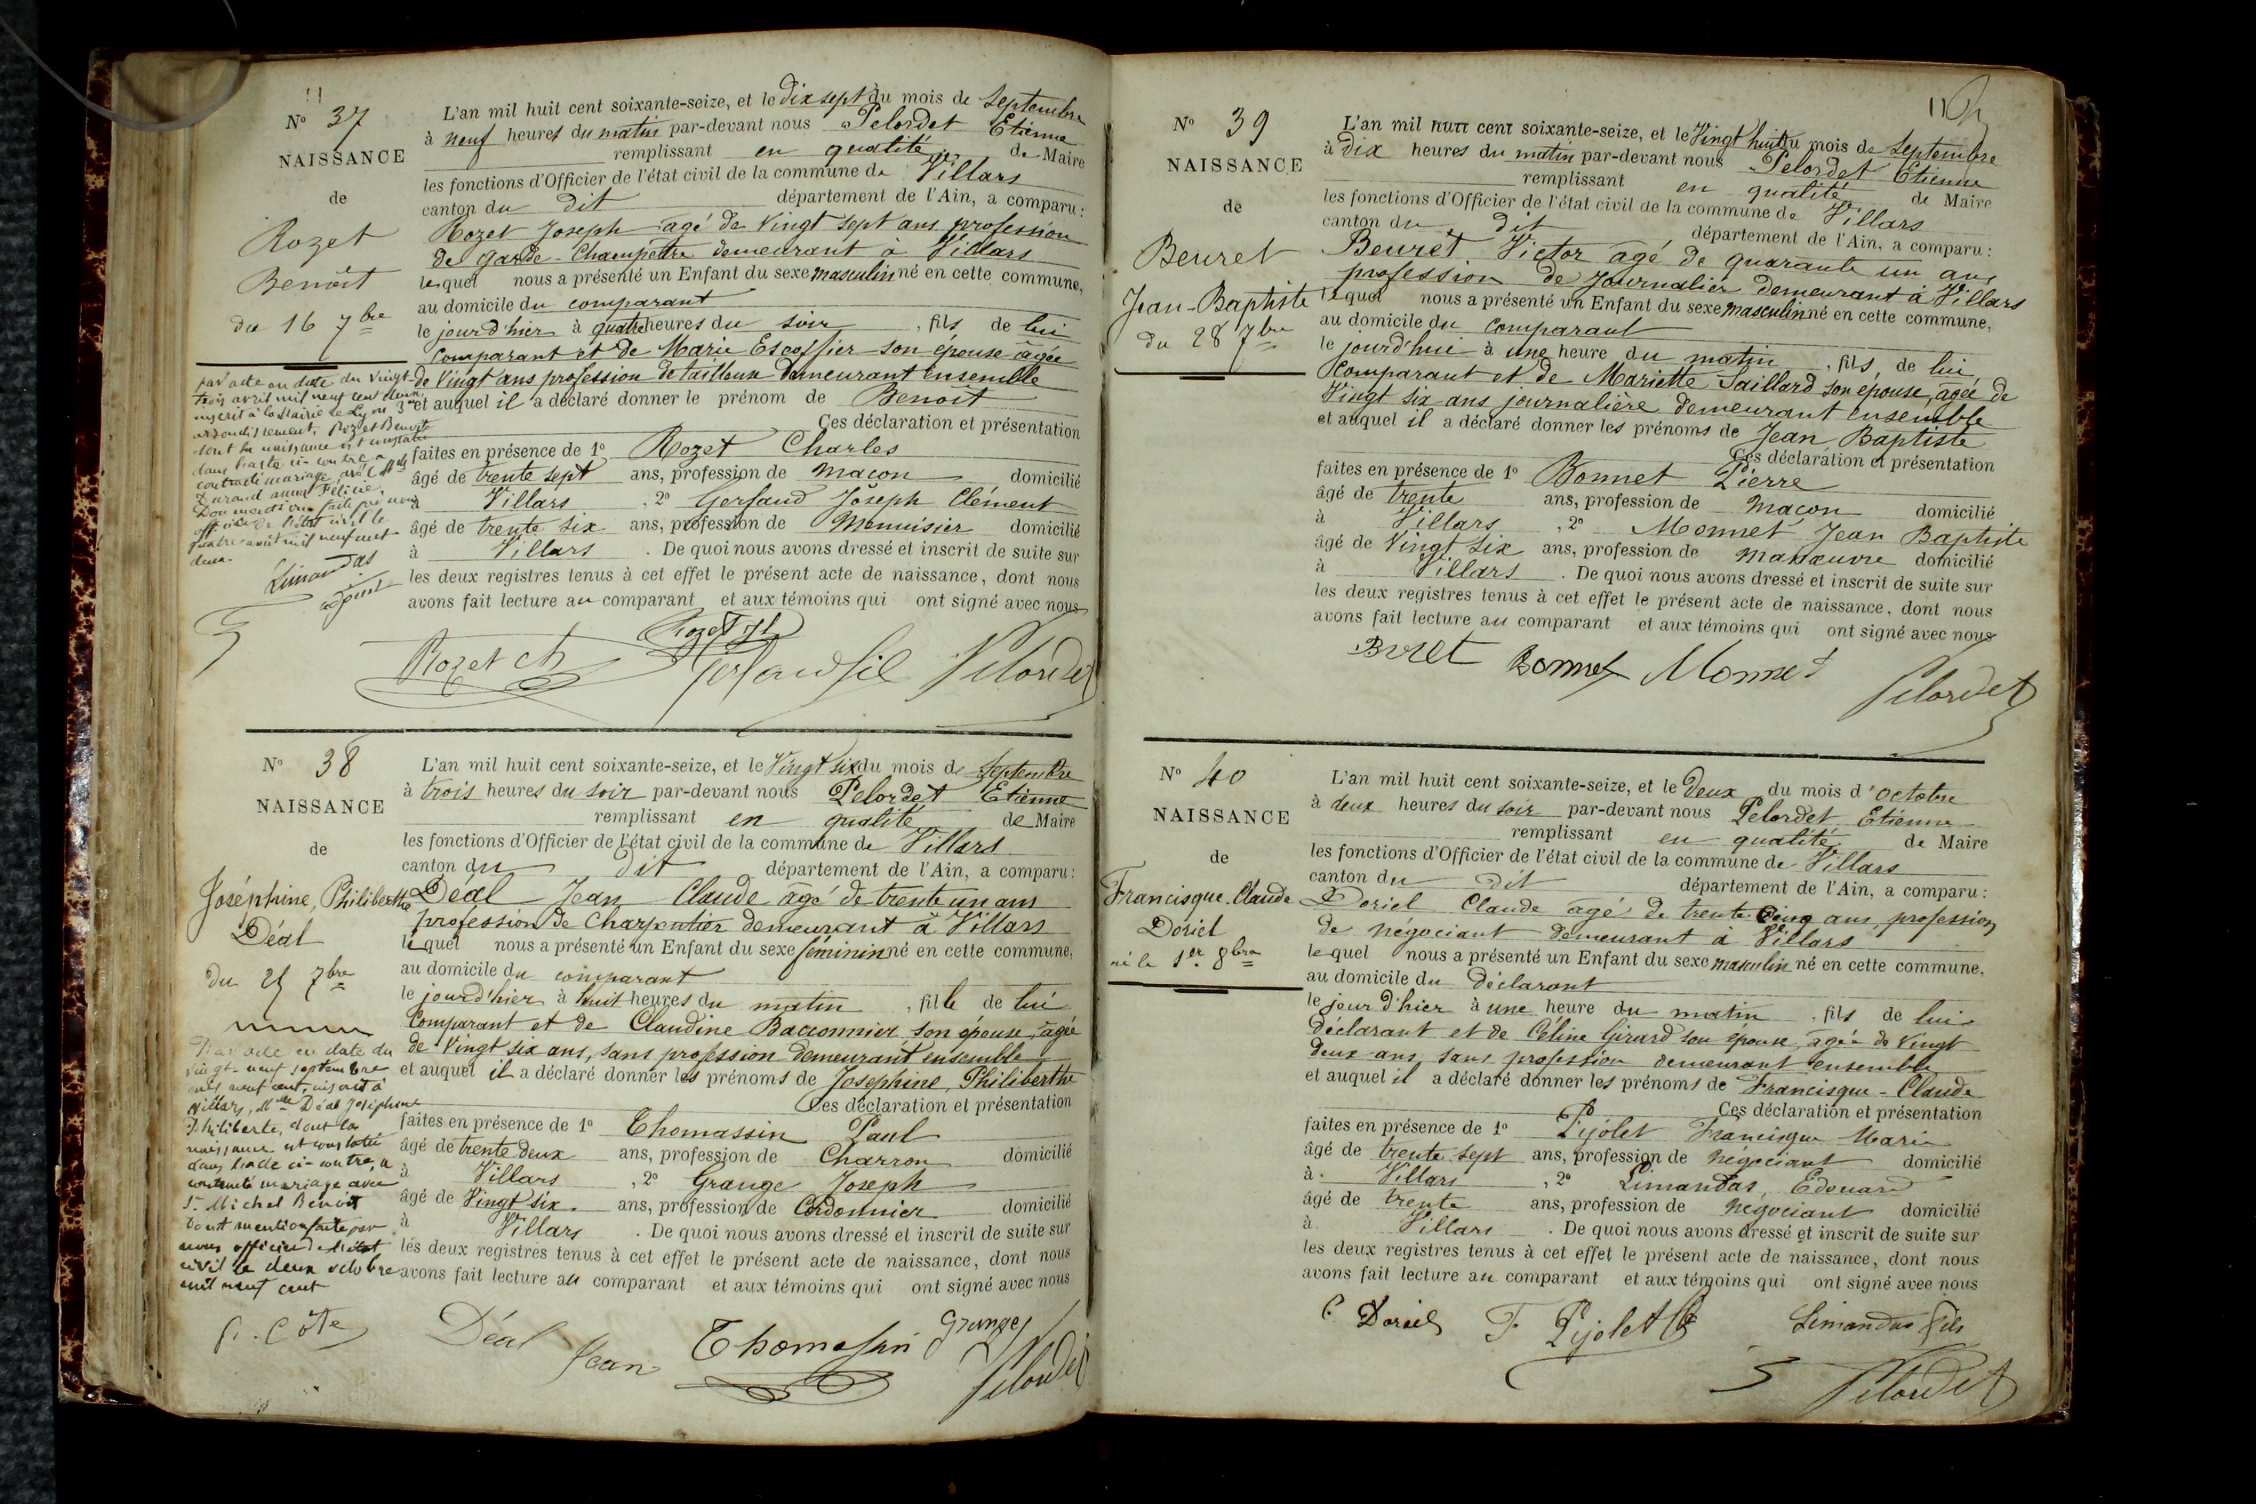 11
N° 37
NAISSANCE
de
Rozet
Benoit
du 16 7bre
L'an mil huit cent soixante-seize, et le dix sept du mois de Septembre
à neuf heures du matin par-devant nous Pelordet Etienne
remplissant en qualité de Maire
les fonctions d'Officier de l'état civil de la commune de Villars
canton du dit département de l'Ain, a comparu :
Rozet Joseph agé de Vingt sept ans profession
de garde-Champêtre demeurant à Villars
lequel nous a présenté un Enfant du sexe masculin né en cette commune,
au domicile du comparant
le jourd'hier à quatre heures du soir, fils de lui
comparant et de Marie Escoffier son épouse âgée
de Vingt ans profession de tailleuse demeurant ensemble
et auquel il a déclaré donner le prénom de Benoit
Ces déclaration et présentation
faites en présence de 1° Rozet Charles
âgé de trente sept ans, profession de maçon domicilié
à Villars, 2° Gerfaud Joseph Clément
âgé de trente six ans, profession de Menuisier domicilié
à Villars. De quoi nous avons dressé et inscrit de suite sur
les deux registres tenus à cet effet le présent acte de naissance, dont nous
avons fait lecture au comparant et aux témoins qui ont signé avec nous
par acte en date du vingt-
trois avril mil neuf cent deux
inscrit à la Mairie de Lyon 3me
arrondissement, Rozet Benoit
dont la naissance est constatée
dans l'acte ci-contre a
contracté mariage avec Mlle
Durand Anna Félicie.
Dont mention faite par nous
officier de l'état civil le
quatre août mil neuf cent
deux.
Limandas
adjoint
Rozet Jh
Rozet ch Gerfaud fil Pelordet
N° 38
NAISSANCE
de
Joséphine, Philiberthe
Déal
du 25 7bre
L'an mil huit cent soixante-seize, et le Vingt six du mois de Septembre
à trois heures du soir par-devant nous Pelordet Etienne
remplissant en qualité de Maire
les fonctions d'Officier de l'état civil de la commune de Villars
canton du dit département de l'Ain, a comparu :
Déal Jean Claude âgé de trente un ans
profession de Charpentier demeurant à Villars
lequel nous a présenté un Enfant du sexe féminin né en cette commune,
au domicile du comparant
le jourd'hier à huit heures du matin, fille de lui
Comparant et de Claudine Baconnier son épouse, âgée
de Vingt six ans, sans profession demeurant ensemble
et auquel il a déclaré donner les prénoms de Josephine, Philiberthe
Ces déclaration et présentation
faites en présence de 1° Thomassin Paul
âgé de trente deux ans, profession de Charron domicilié
à Villars, 2° Grange Joseph
âgé de Vingt six ans, profession de Cordonnier domicilié
à Villars. De quoi nous avons dressé et inscrit de suite sur
les deux registres tenus à cet effet le présent acte de naissance, dont nous
avons fait lecture au comparant et aux témoins qui ont signé avec nous
Par acte en date du
vingt-neuf septembre
mil neuf cent, inscrit à
Villars, Mlle Déal Joséphine
Philiberte, dont la
naissance est constatée
dans l'acte ci-contre, a
contracté mariage avec
Sr Michel Benoit
Dont mention faite par
nous officier de l'état
civil le deux octobre
mil neuf cent
Côte
Déal Jean Thomassin Grange Pelordet
N° 39
NAISSANCE
de
Beuret
Jean-Baptiste
du 28 7bre
L'an mil huit cent soixante-seize, et le Vingt huit du mois de Septembre
à dix heures du matin par-devant nous Pelordet Etienne
remplissant en qualité de Maire
les fonctions d'Officier de l'état civil de la commune de Villars
canton du dit département de l'Ain, a comparu :
Beuret Victor âgé de quarante un ans
profession de Journalier demeurant à Villars
lequel nous a présenté un Enfant du sexe masculin né en cette commune,
au domicile du comparant
le jourd'hui à une heure du matin, fils de lui
comparant et de Mariette Taillard son épouse, agée de
Vingt six ans journalière demeurant ensemble
et auquel il a déclaré donner les prénoms de Jean Baptiste
Ces déclaration et présentation
faites en présence de 1° Bonnet Pierre
âgé de trente ans, profession de Maçon domicilié
à Villars, 2° Monnet Jean Baptiste
âgé de Vingt Six ans, profession de manœuvre domicilié
à Villars. De quoi nous avons dressé et inscrit de suite sur
les deux registres tenus à cet effet le présent acte de naissance, dont nous
avons fait lecture au comparant et aux témoins qui ont signé avec nous
Buret Bonnet Monnet
Pelordet
N° 40
NAISSANCE
de
Francisque-Claude
Doriel
né le 1er 8bre
L'an mil huit cent soixante-seize, et le deux du mois d'octobre
à deux heures du soir par-devant nous Pelordet Etienne
remplissant en qualité de Maire
les fonctions d'Officier de l'état civil de la commune de Villars
canton du dit département de l'Ain, a comparu :
Doriel Claude agé de trente cinq ans, profession
de négociant demeurant à Villars
lequel nous a présenté un Enfant du sexe masculin né en cette commune,
au domicile du déclarant
le jour d'hier à une heure du matin, fils de lui
déclarant et de Céline Girard son épouse, agée de Vingt
deux ans, sans profession demeurant ensemble
et auquel il a déclaré donner les prénoms de Francisque-Claude
Ces déclaration et présentation
faites en présence de 1° Pijolet Francisque Marie
âgé de trente sept ans, profession de négociant domicilié
à Villars, 2° Limandas, Edouard
âgé de trente ans, profession de négociant domicilié
à Villars. De quoi nous avons dressé et inscrit de suite sur
les deux registres tenus à cet effet le présent acte de naissance, dont nous
avons fait lecture au comparant et aux témoins qui ont signé avec nous
C. Doriel F. Pijolet Limandas fils
Pelordet